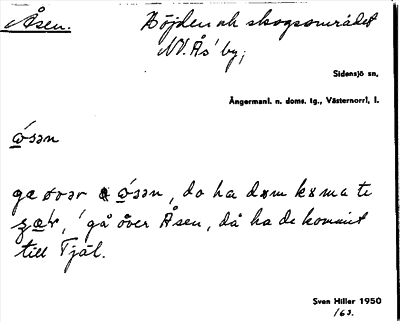 Åsen.
Höjden och skogsområdet
NV. Ås' by;
Sidensjö sn,
Ångermanl. n. doms. tg., Västernorrl, l.
ώsən
ώsən, do ha dəm
'gå över Åsen, då ha de kommit
till Tjäl.
Sven Hiller 1950
/63.